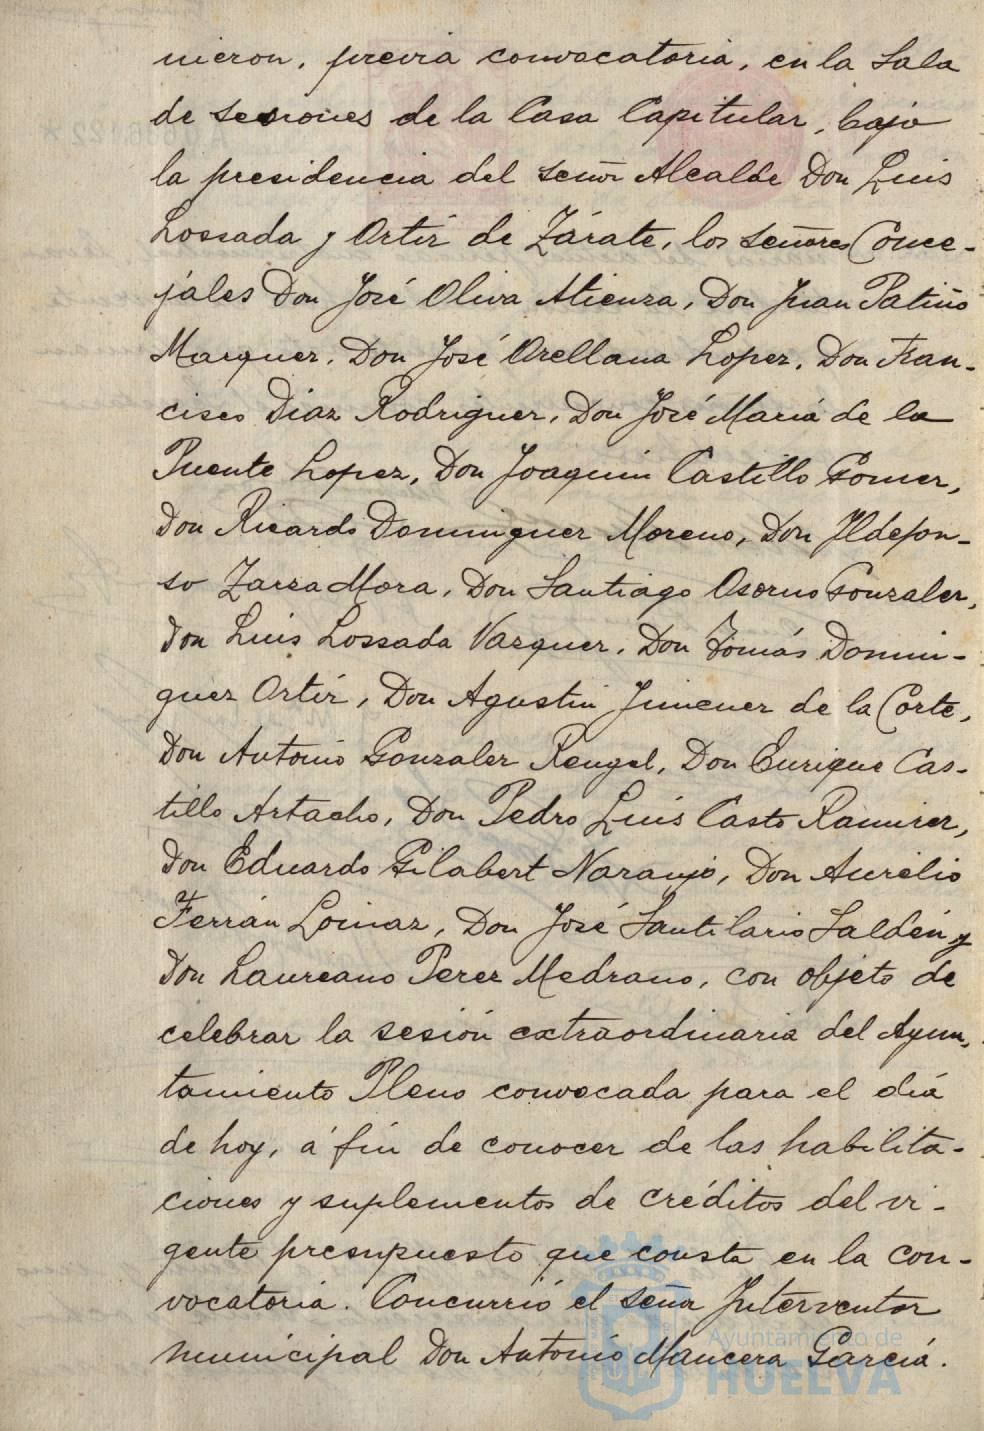 nieron, previa convocatoria, en la Sala
de sesiones de la Casa Capitular, bajo
la presidencia del señor Alcalde Don Luis
Lossada y Ortiz de Zárate, los señores Conce-
jales Don José Oliva Atienza, Don Juan Patiño
Marquez, Don José Orellana Lopez, Don Fran-
cisco Diaz Rodriguez, Don José María de la
Puente Lopez, Don Joaquin Castillo Gomez,
Don Ricardo Dominguez Moreno, Don Ildefon-
so Zarza Mora, Don Santiago Osorno Gonzalez,
Don Luis Lossada Vazquez, Don Tomás Domin-
guez Ortiz, Don Agustin Jimenez de la Corte,
Don Antonio Gonzalez Rengel, Don Enrique Cas-
tillo Artacho, Don Pedro Luis Casto Ramirez,
Don Eduardo Gilabert Naranjo, Don Aurelio
Ferrán Loinaz, Don José Santilario Saldén y
Don Laureano Perez Medrano, con objeto de
celebrar la sesión extraordinaria del Ayun-
tamiento Pleno convocada para el día
de hoy, á fin de conocer de las habilita-
ciones y suplementos de créditos del vi-
gente presupuesto que consta en la con-
vocatoria. Concurrió el señor Interventor
municipal Don Antonio Mancera García.
Ayuntamiento de
HUELVA